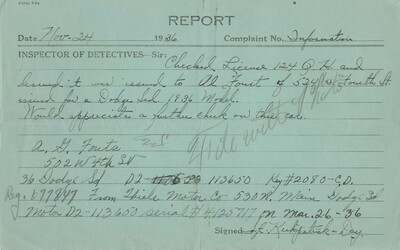 REPORT
Date Nov-24 1936 Complaint No. Information
INSPECTOR OF DETECTIVES—Sir: Checked License 124 Q.H. and
it was issued to Al Fout of Fourth St.
issued for a Dodge Sed 1936 Model.
Would appreciate a further check on this car.
A. G. Fouts
502 W 4th St
36 Dodge Sed D2- 113650 Key #2080-C.D.
Reg. From Thiele Motor Co- 530 W. Main Dodge Sed
Motor D2-113650 serial # 4125717 on Mar. 26-'36
Signed Kirkpatrick-Day.